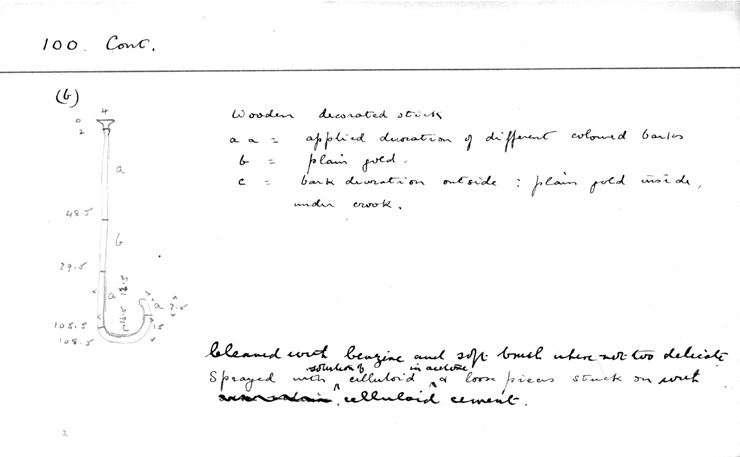 100. Cont.
(b)
4
0
2
a
48.5
b
79.5
a
12.5
16.5
a
7.5
105.5
15
108.5
Wooden decorated stick
a a = applied decoration of different coloured barks
b = plain gold.
c = bark decoration outside : plain gold inside,
under crook.
Cleaned with benzine and soft brush where not too delicate
Sprayed with solution of celluloid in acetone & loose pieces stuck on with
celluloid cement.
2